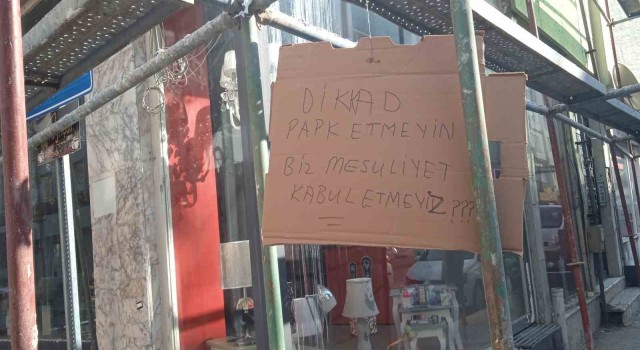 DİKKAD
PAPK ETMEYİN
BİZ MESULİYET
KABUL ETMEYİZ ???